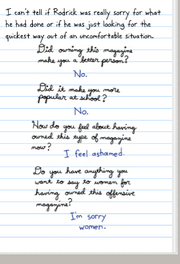 I can't tell if Rodrick was really sorry for what
he had done or if he was just looking for the
quickest way out of an uncomfortable situation.
Did owning this magazine
make you a better person?
No.
Did it make you more
popular at school?
No.
How do you feel about having
owned this type of magazine
now?
I feel ashamed.
Do you have anything you
want to say to women for
having owned this offensive
magazine?
I'm sorry
women.